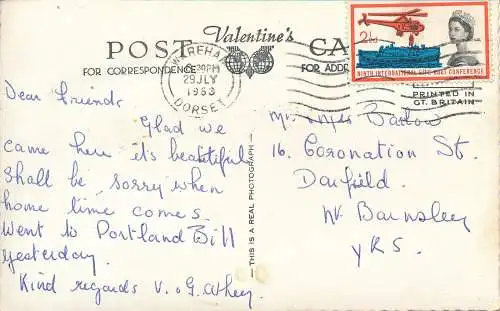 Valentine's
POST CA
FOR CORRESPONDENCE FOR ADDR
WAREHAM
6:30PM
29 JLY
1963
DORSET
2½d
NINTH INTERNATIONAL LIFE-BOAT CONFERENCE
PRINTED IN
GT. BRITAIN
THIS IS A REAL PHOTOGRAPH
Dear Friends,
Glad we
came here it's beautiful
shall be sorry when
home time comes.
Went to Portland Bill
yesterday.
Kind regards V. & G. Athey
Mr. Barlow
16, Coronation St.
Darfield.
Nr. Barnsley
YKS.